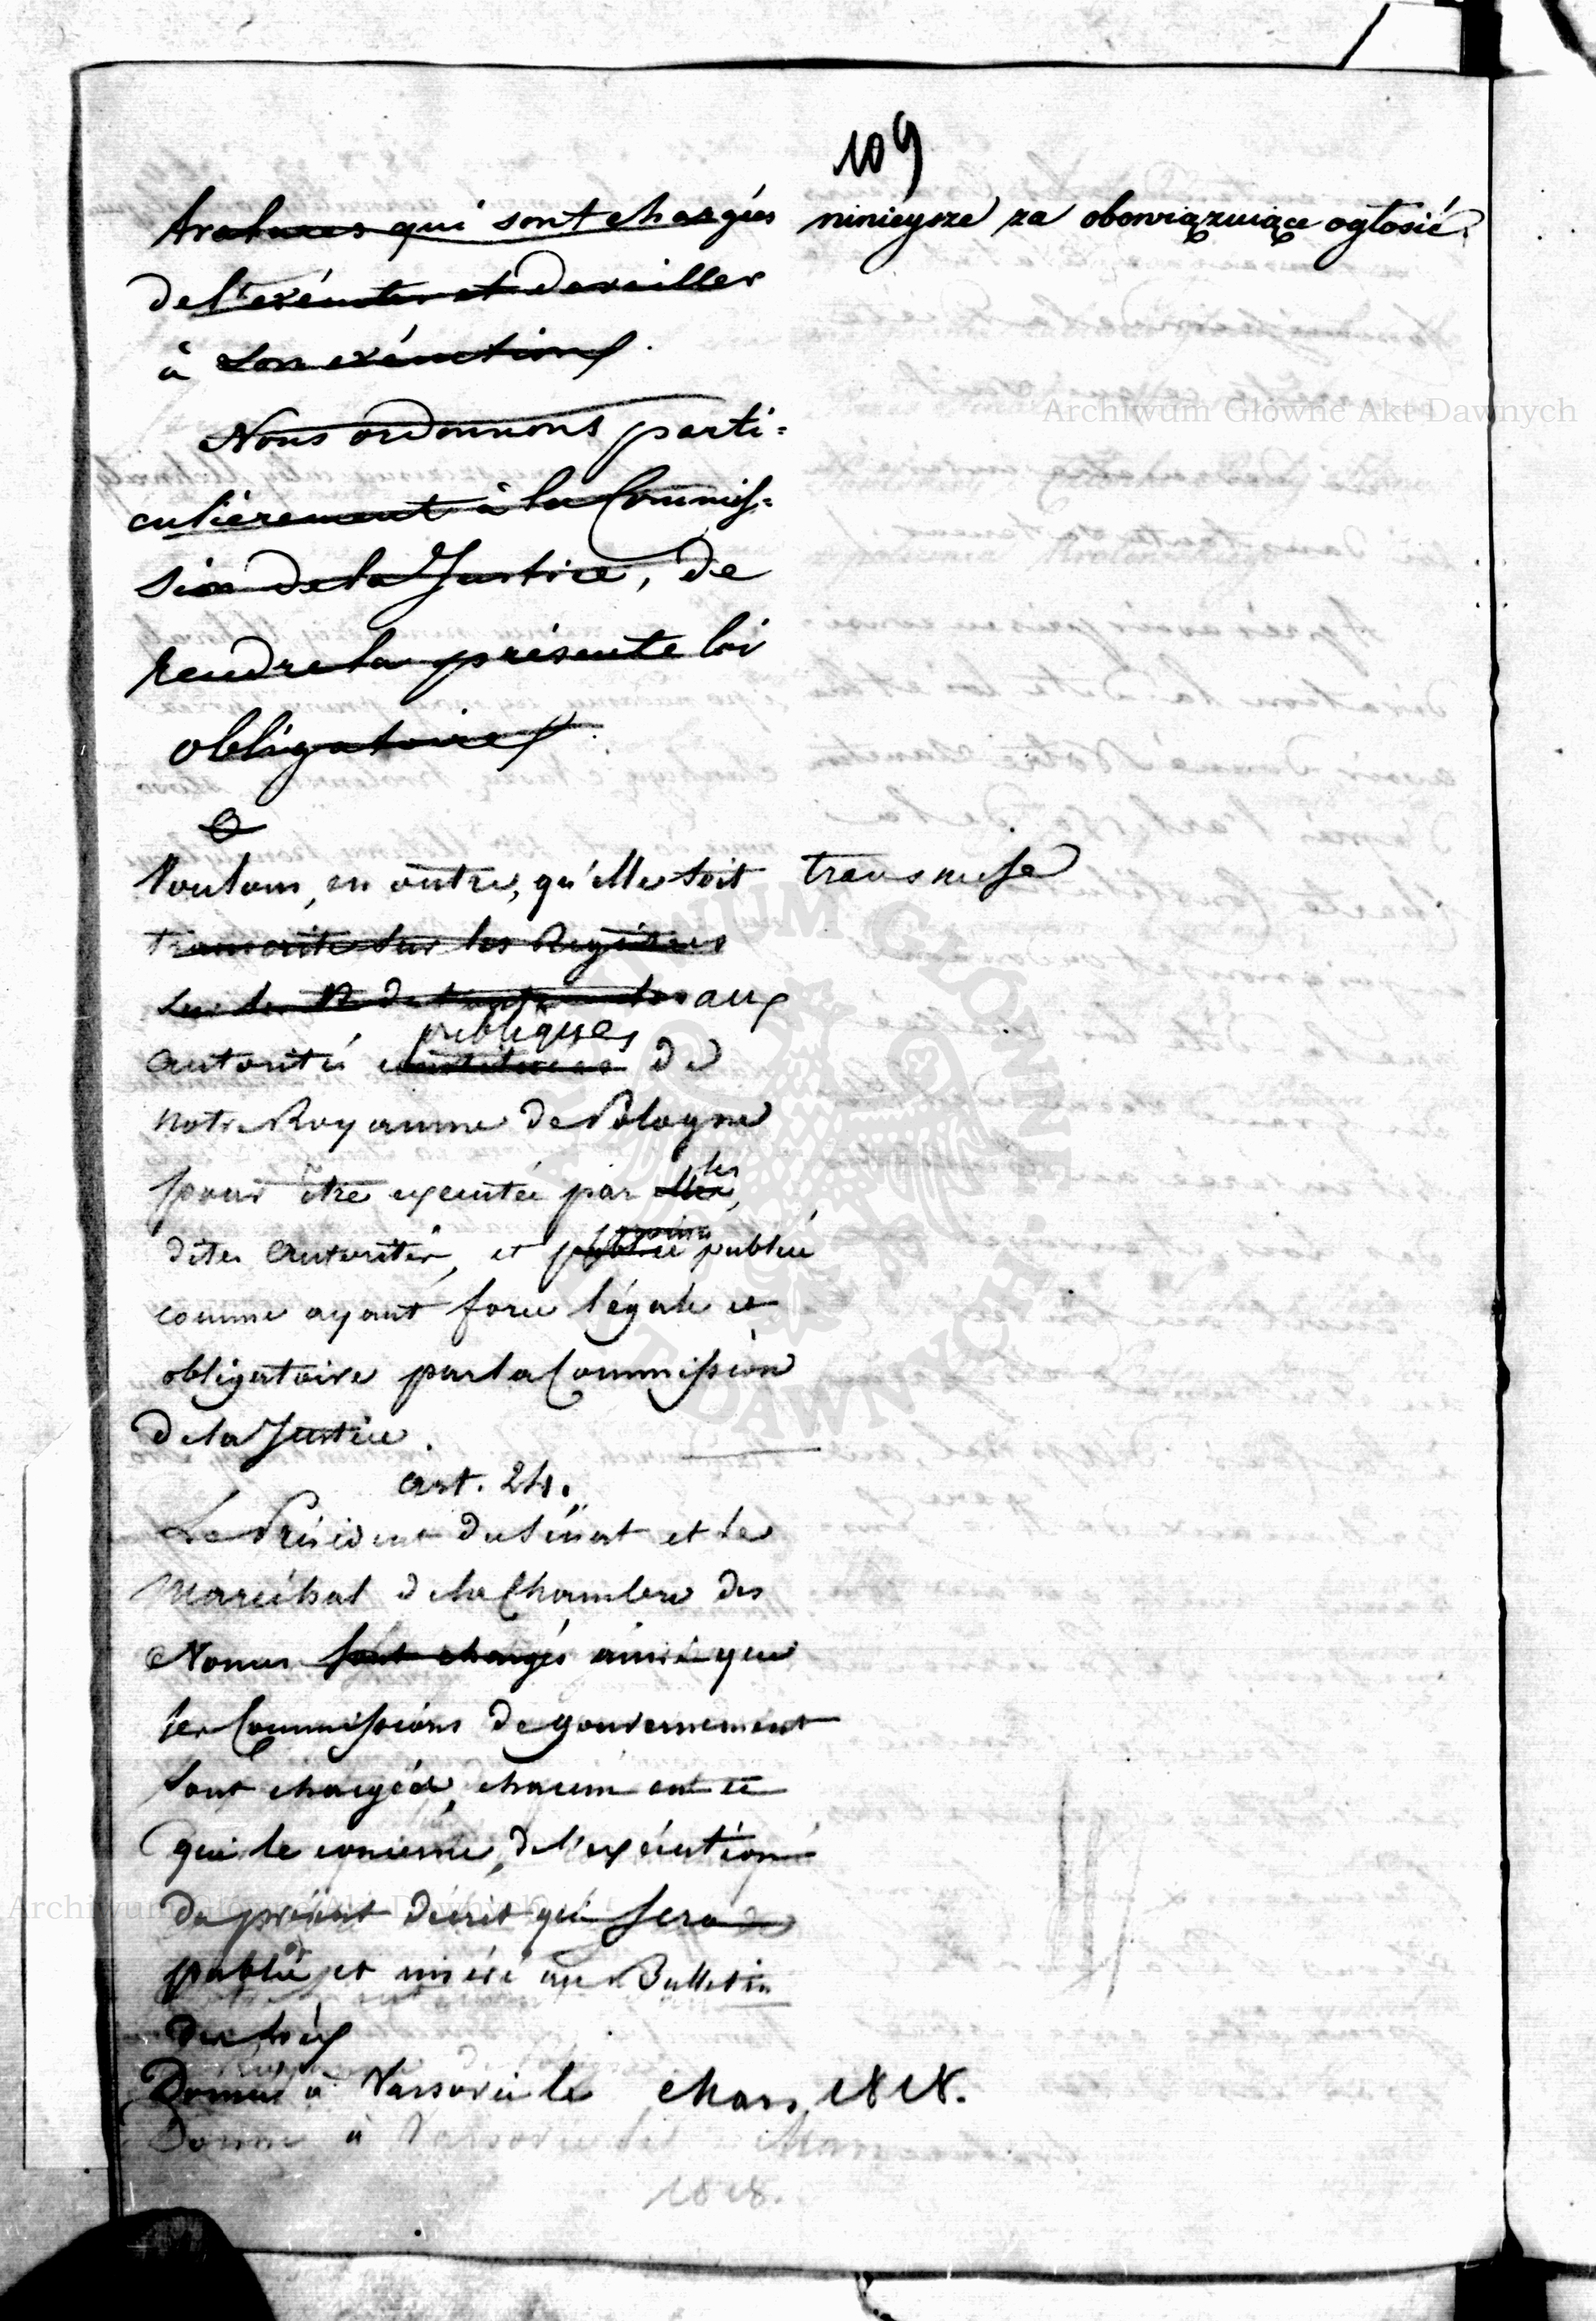 109
tratures qui sont chargées
niniéysze za obowiązuiące ogłosić.
de l'exécuter et de veiller
à son exécution.
Nous ordonnons parti=
culièrement à la Commis=
sion de la Justice, de
rendre la présente loi
obligatoire.
Voulons, en outre, qu'elle soit transmise
transcrite sur les Registres
aux
publiques
autorités constituées de
notre Royaume de Pologne
les
pour être exécutée par elles,
dites autorités, et publiée publiée
comme ayant force légale et
obligatoire par la Commission
de la Justice.
art. 24.
Le Président du Sénat et le
Maréchal de la Chambre des
Nonces sont chargés ainsi que
les Commissions de gouvernement
sont chargés, chacun en ce
qui le concerne, de l'exécution
du présent décret qui sera
publié et inséré au Bulletin
des loix
Donné à Varsovie le Mars 1818.
Donné à Varsovie le Mars
1818.
Archiwum Główne Akt Dawnych
Archiwum Główne Akt Dawnych
ARCHIWUM GŁÓWNE AKT DAWNYCH